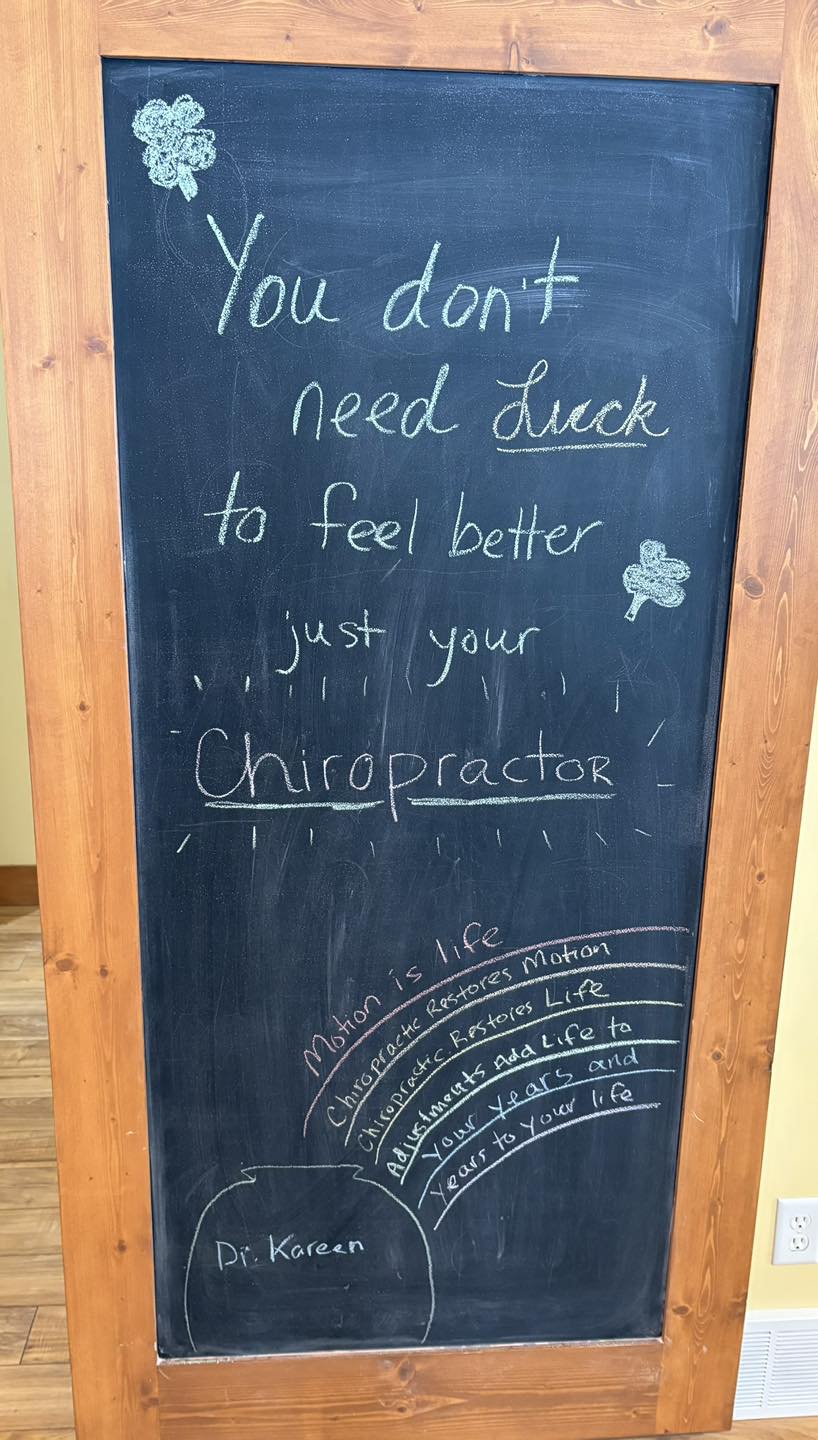 You don't
need Luck
to feel better
just your
Chiropractor
Motion is life
Chiropractic Restores Motion
Chiropractic Restores Life
Adjustments Add Life to
your years and
years to your life
Dr. Kareen